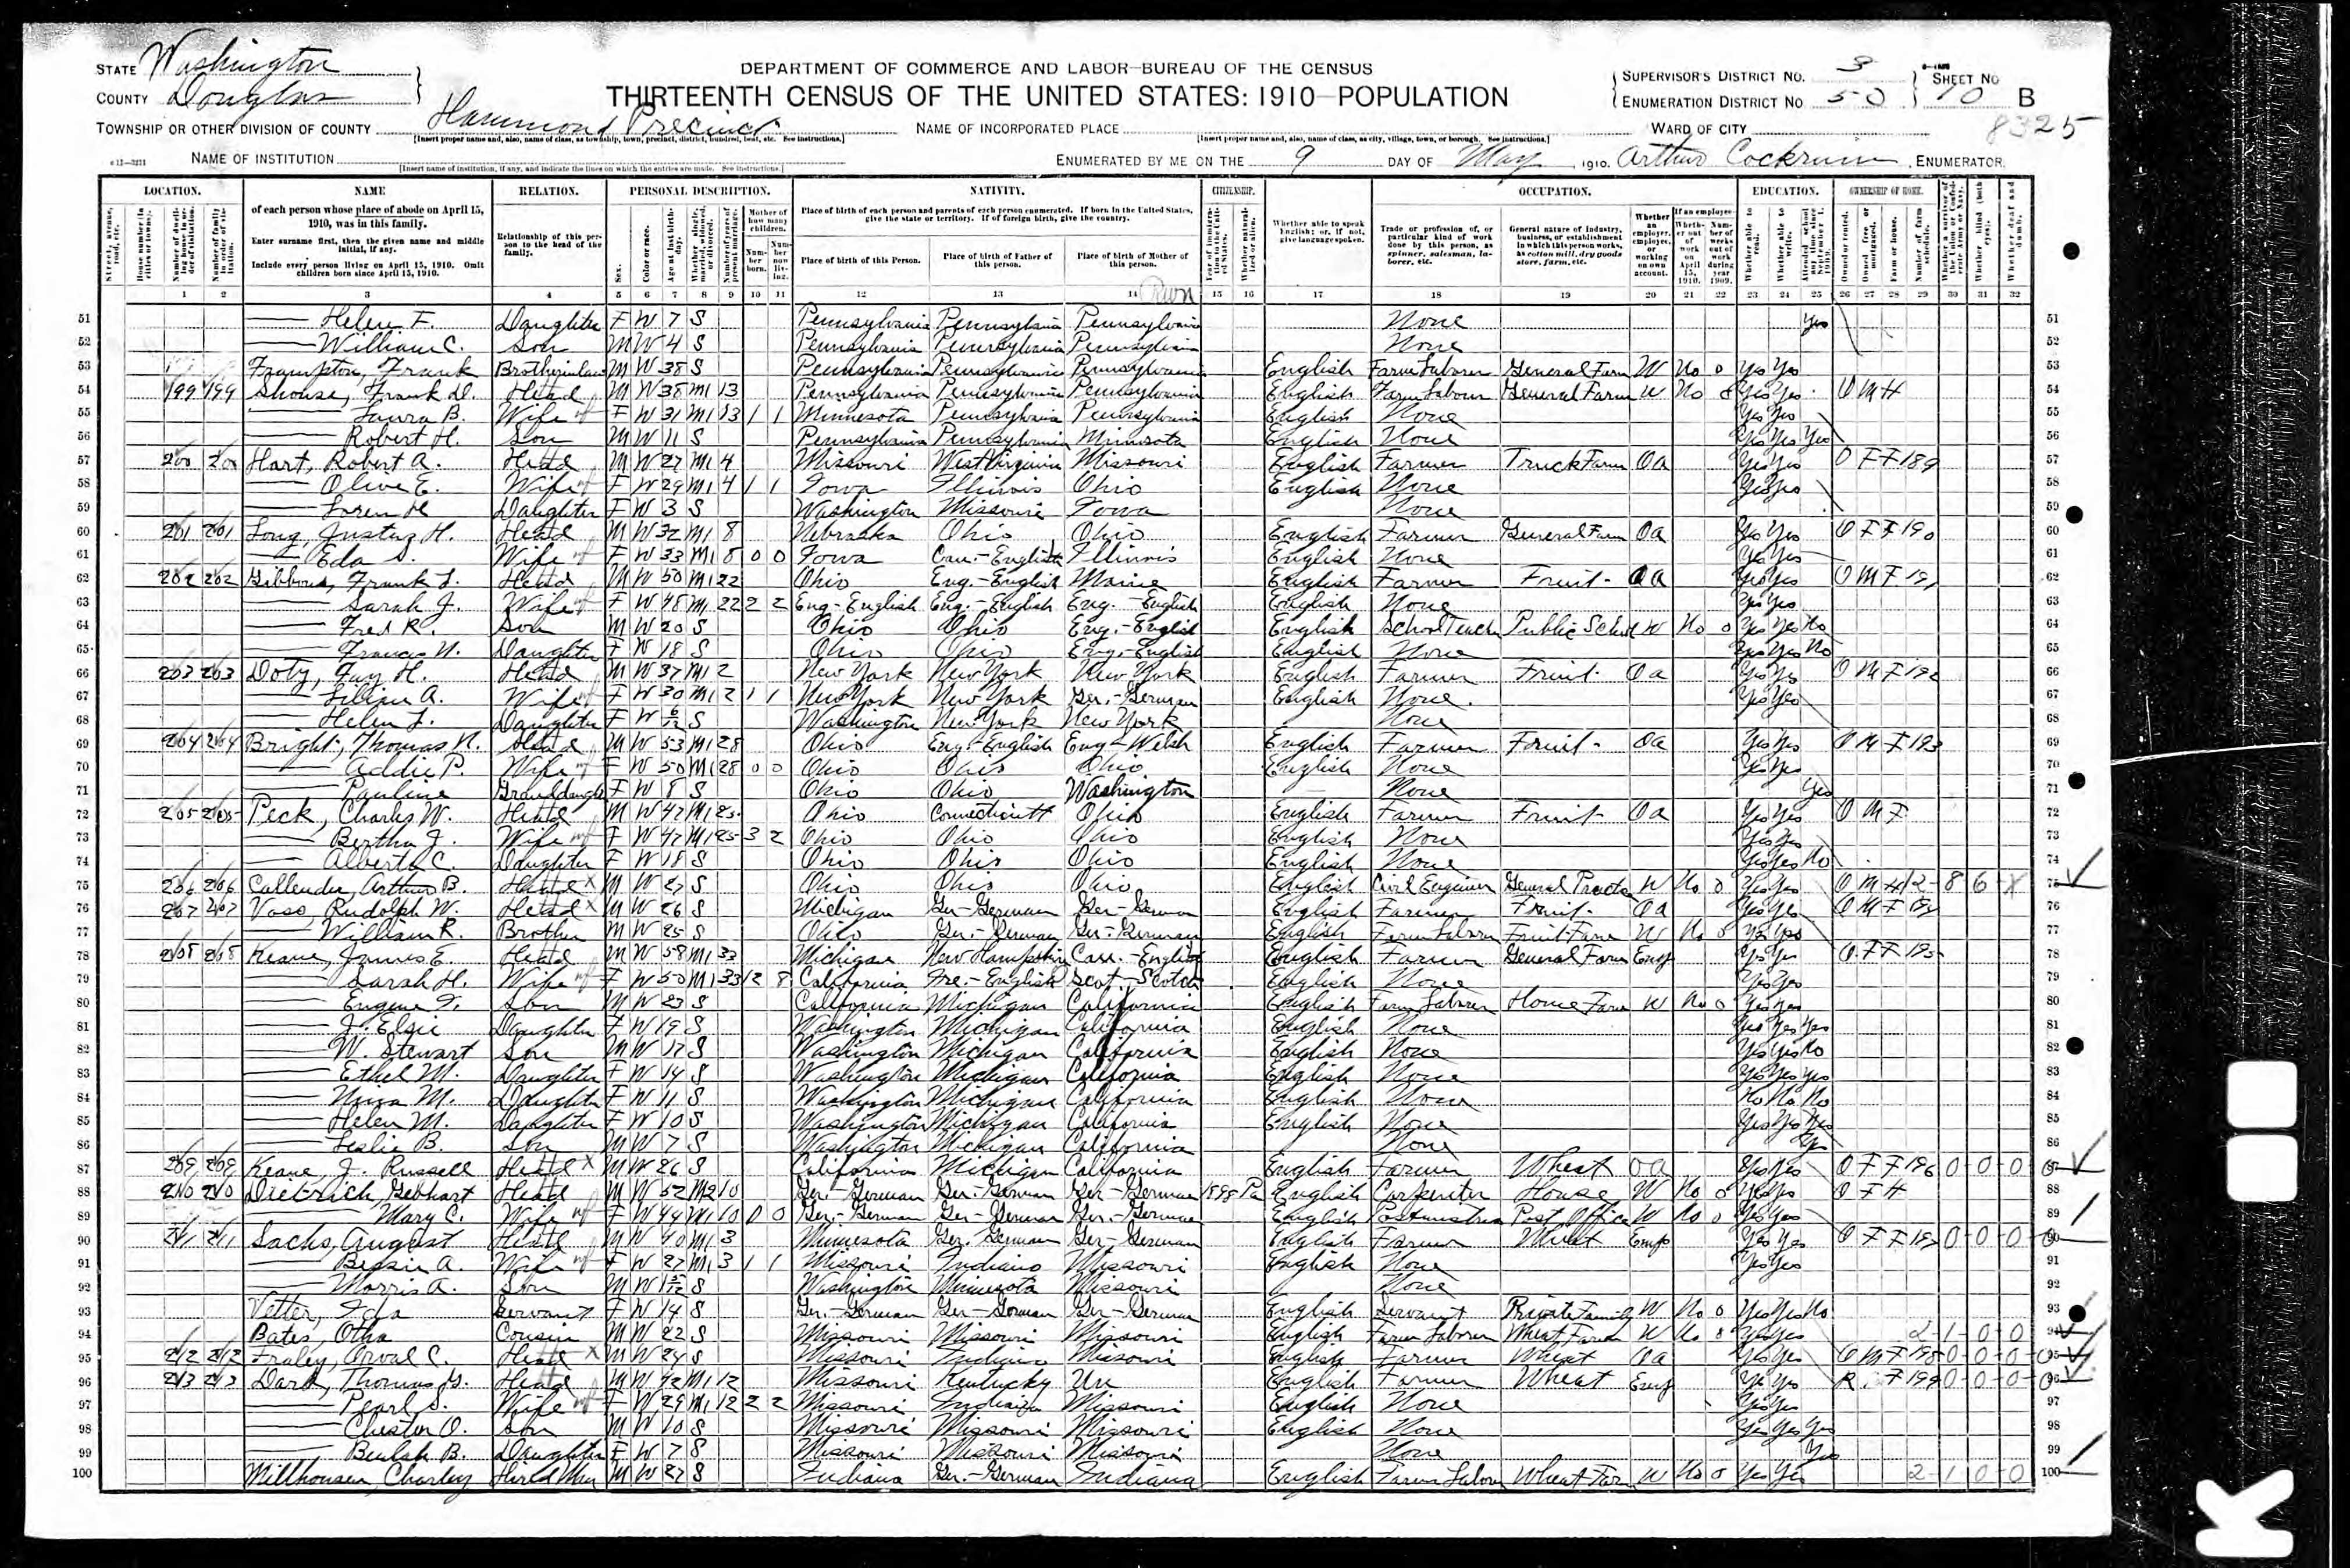 STATE Washington
COUNTY Douglas
DEPARTMENT OF COMMERCE AND LABOR—BUREAU OF THE CENSUS
THIRTEENTH CENSUS OF THE UNITED STATES: 1910—POPULATION
SUPERVISOR'S DISTRICT NO. 3
ENUMERATION DISTRICT NO. 50
SHEET NO 10 B
8325
TOWNSHIP OR OTHER DIVISION OF COUNTY Hammond Precinct
NAME OF INCORPORATED PLACE
WARD OF CITY
NAME OF INSTITUTION
ENUMERATED BY ME ON THE 9 DAY OF May, 1910. Arthur Cockrum, ENUMERATOR.
LOCATION. NAME RELATION. PERSONAL DESCRIPTION. NATIVITY. CITIZENSHIP. OCCUPATION. EDUCATION. OWNERSHIP OF HOME.
of each person whose place of abode on April 15, 1910, was in this family.
Enter surname first, then the given name and middle initial, if any.
Include every person living on April 15, 1910. Omit children born since April 15, 1910.
Relationship of this person to the head of the family.
Place of birth of each person and parents of each person enumerated. If born in the United States, give the state or territory. If of foreign birth, give the country.
Place of birth of this Person. Place of birth of Father of this person. Place of birth of Mother of this person.
1 2 3 4 5 6 7 8 9 10 11 12 13 14 15 16 17 18 19 20 21 22 23 24 25 26 27 28 29 30 31 32
51 Helen F. Daughter F W 7 S Pennsylvania Pennsylvania Pennsylvania None Yes 51
52 William C. Son M W 4 S Pennsylvania Pennsylvania Pennsylvania None 52
53 Frampton, Frank Brotherinlaw M W 38 S Pennsylvania Pennsylvania Pennsylvania English Farm Laborer General Farm W No 0 Yes Yes 53
54 199 199 Shouse, Frank D. Head M W 38 M1 13 Pennsylvania Pennsylvania Pennsylvania English Farm Laborer General Farm W No 0 Yes Yes O M H 54
55 Laura B. Wife F W 31 M1 13 1 1 Minnesota Pennsylvania Pennsylvania English None Yes Yes 55
56 Robert H. Son M W 11 S Pennsylvania Pennsylvania Minnesota English None Yes Yes Yes 56
57 200 200 Hart, Robert A. Head M W 27 M1 4 Missouri West Virginia Missouri English Farmer Truck Farm Oa Yes Yes O F F 189 57
58 Olive E. Wife F W 29 M1 4 1 1 Iowa Illinois Ohio English None Yes Yes 58
59 Daughter F W 3 S Washington Missouri Iowa None 59
60 201 201 Long, H. Head M W 32 M1 8 Nebraska Ohio Ohio English Farmer General Farm Oa Yes Yes O F F 190 60
61 Eda S. Wife F W 33 M1 8 0 0 Iowa Can.-English Illinois English None Yes Yes 61
62 202 202 Gibbons, Frank L. Head M W 50 M1 22 Ohio Eng.-English Maine English Farmer Fruit Oa Yes Yes O M F 191 62
63 Sarah J. Wife F W 48 M1 22 2 2 Eng-English Eng.-English Eng.-English English None Yes Yes 63
64 Fred R. Son M W 20 S Ohio Ohio Eng.-English English School Teacher Public School W No 0 Yes Yes No 64
65 Frances N. Daughter F W 18 S Ohio Ohio Eng.-English English None Yes Yes No 65
66 203 203 Doty, Fay H. Head M W 37 M1 2 New York New York New York English Farmer Fruit Oa Yes Yes O M F 192 66
67 Lillian A. Wife F W 30 M1 2 1 1 New York New York Ger.-German English None Yes Yes 67
68 Helen L. Daughter F W 6/12 S Washington New York New York None 68
69 204 204 Bright, Thomas N. Head M W 53 M1 28 Ohio Eng-English Eng-Welsh English Farmer Fruit Oa Yes Yes O M F 193 69
70 Addie P. Wife F W 50 M1 28 0 0 Ohio Ohio Ohio English None Yes Yes 70
71 Pauline Granddaughter F W 8 S Ohio Ohio Washington None Yes 71
72 205 205 Peck, Charles W. Head M W 47 M1 25 Ohio Connecticutt Ohio English Farmer Fruit Oa Yes Yes O M F 72
73 Bertha J. Wife F W 47 M1 25 3 2 Ohio Ohio Ohio English None Yes Yes 73
74 Alberta C. Daughter F W 18 S Ohio Ohio Ohio English None Yes Yes No 74
75 206 206 Callender, Arthur B. Head M W 27 S Ohio Ohio Ohio English Civil Engineer General Practice W No 0 Yes Yes O M H 75
76 207 207 Voss, Rudolph W. Head M W 26 S Michigan Ger-German Ger-German English Farmer Fruit Oa Yes Yes O M F 76
77 William R. Brother M W 25 S Ohio Ger.-German Ger.-German English Farm Laborer Fruit Farm W No 0 Yes Yes 77
78 208 208 Keane, James E. Head M W 58 M1 33 Michigan New Hampshire Can.-English English Farmer General Farm Emp Yes Yes O F F 195 78
79 Sarah H. Wife F W 50 M1 33 12 8 California Ire-English Scot-Scotch English None Yes Yes 79
80 Eugene F. Son M W 23 S California Michigan California English Farm Laborer Home Farm W No 0 Yes Yes 80
81 J. Elsie Daughter F W 19 S Washington Michigan California English None Yes Yes Yes 81
82 W. Stewart Son M W 17 S Washington Michigan California English None Yes Yes No 82
83 Ethel M. Daughter F W 14 S Washington Michigan California English None Yes Yes Yes 83
84 M. Daughter F W 11 S Washington Michigan California English None No No No 84
85 Helen M. Daughter F W 10 S Washington Michigan California English None Yes Yes Yes 85
86 Leslie B. Son M W 7 S Washington Michigan California None Yes 86
87 209 209 Keane, J. Russell Head M W 26 S California Michigan California English Farmer Wheat Oa Yes Yes O F F 196 87
88 210 210 Dietrich, Gebhart Head M W 52 M2 10 Ger.-German Ger.-German Ger-German 1898 Pa English Carpenter House W No 0 Yes Yes O F H 88
89 Mary C. Wife F W 44 M1 10 0 0 Ger.-German Ger-German Ger.-German English Postmistress Post Office W No 0 Yes Yes 89
90 211 211 Sachs, August Head M W 40 M1 3 Minnesota Ger. German Ger-German English Farmer Wheat Emp Yes Yes O F F 197 90
91 Bessie A. Wife F W 27 M1 3 1 1 Missouri Indiana Missouri English None Yes Yes 91
92 Morris A. Son M W S Washington Minnesota Missouri None 92
93 Vetter, Ida Servant F W 14 S Ger.-German Ger-German Ger-German English Servant Private Family W No 0 Yes Yes No 93
94 Bates, Otha Cousin M W 22 S Missouri Missouri Missouri English Farm Laborer Wheat Farm W No Yes Yes 2-1-0-0 94
95 212 212 Fraley, Orval C. Head M W 24 S Missouri Indiana Missouri English Farmer Wheat Oa Yes Yes O M F 198 95
96 213 213 Dark, Thomas G. Head M W 42 M1 12 Missouri Kentucky Un English Farmer Wheat Emp Yes Yes R F 199 96
97 Pearl S. Wife F W 29 M1 12 2 2 Missouri Indiana Missouri English None Yes Yes 97
98 Chester O. Son M W 10 S Missouri Missouri Missouri English None Yes Yes Yes 98
99 Beulah B. Daughter F W 7 S Missouri Missouri Missouri None Yes 99
100 Millhousen, Charley Hired Man M W 27 S Indiana Ger.-German Indiana English Farm Labor Wheat Far W No 0 Yes Yes 2-1-0-0 100
K